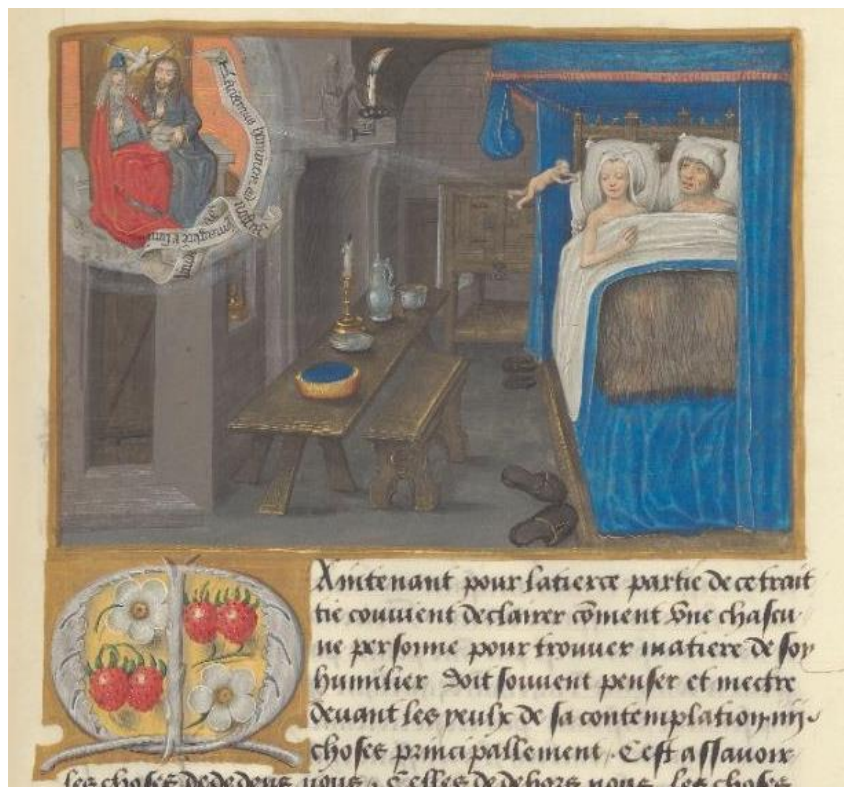 Faciamus hominem ad
Maintenant pour latierce partie de ce trait
tie couuient declairer cōment Vne chascu
ne personne pour trouuer matiere de soy
humilier Doit souuent penser et mectre
deuant les yeulx de sa contemplation iiii
choses principallement. Cest assauoir
les choses dededens nous. Celles de dehors nous. les choses